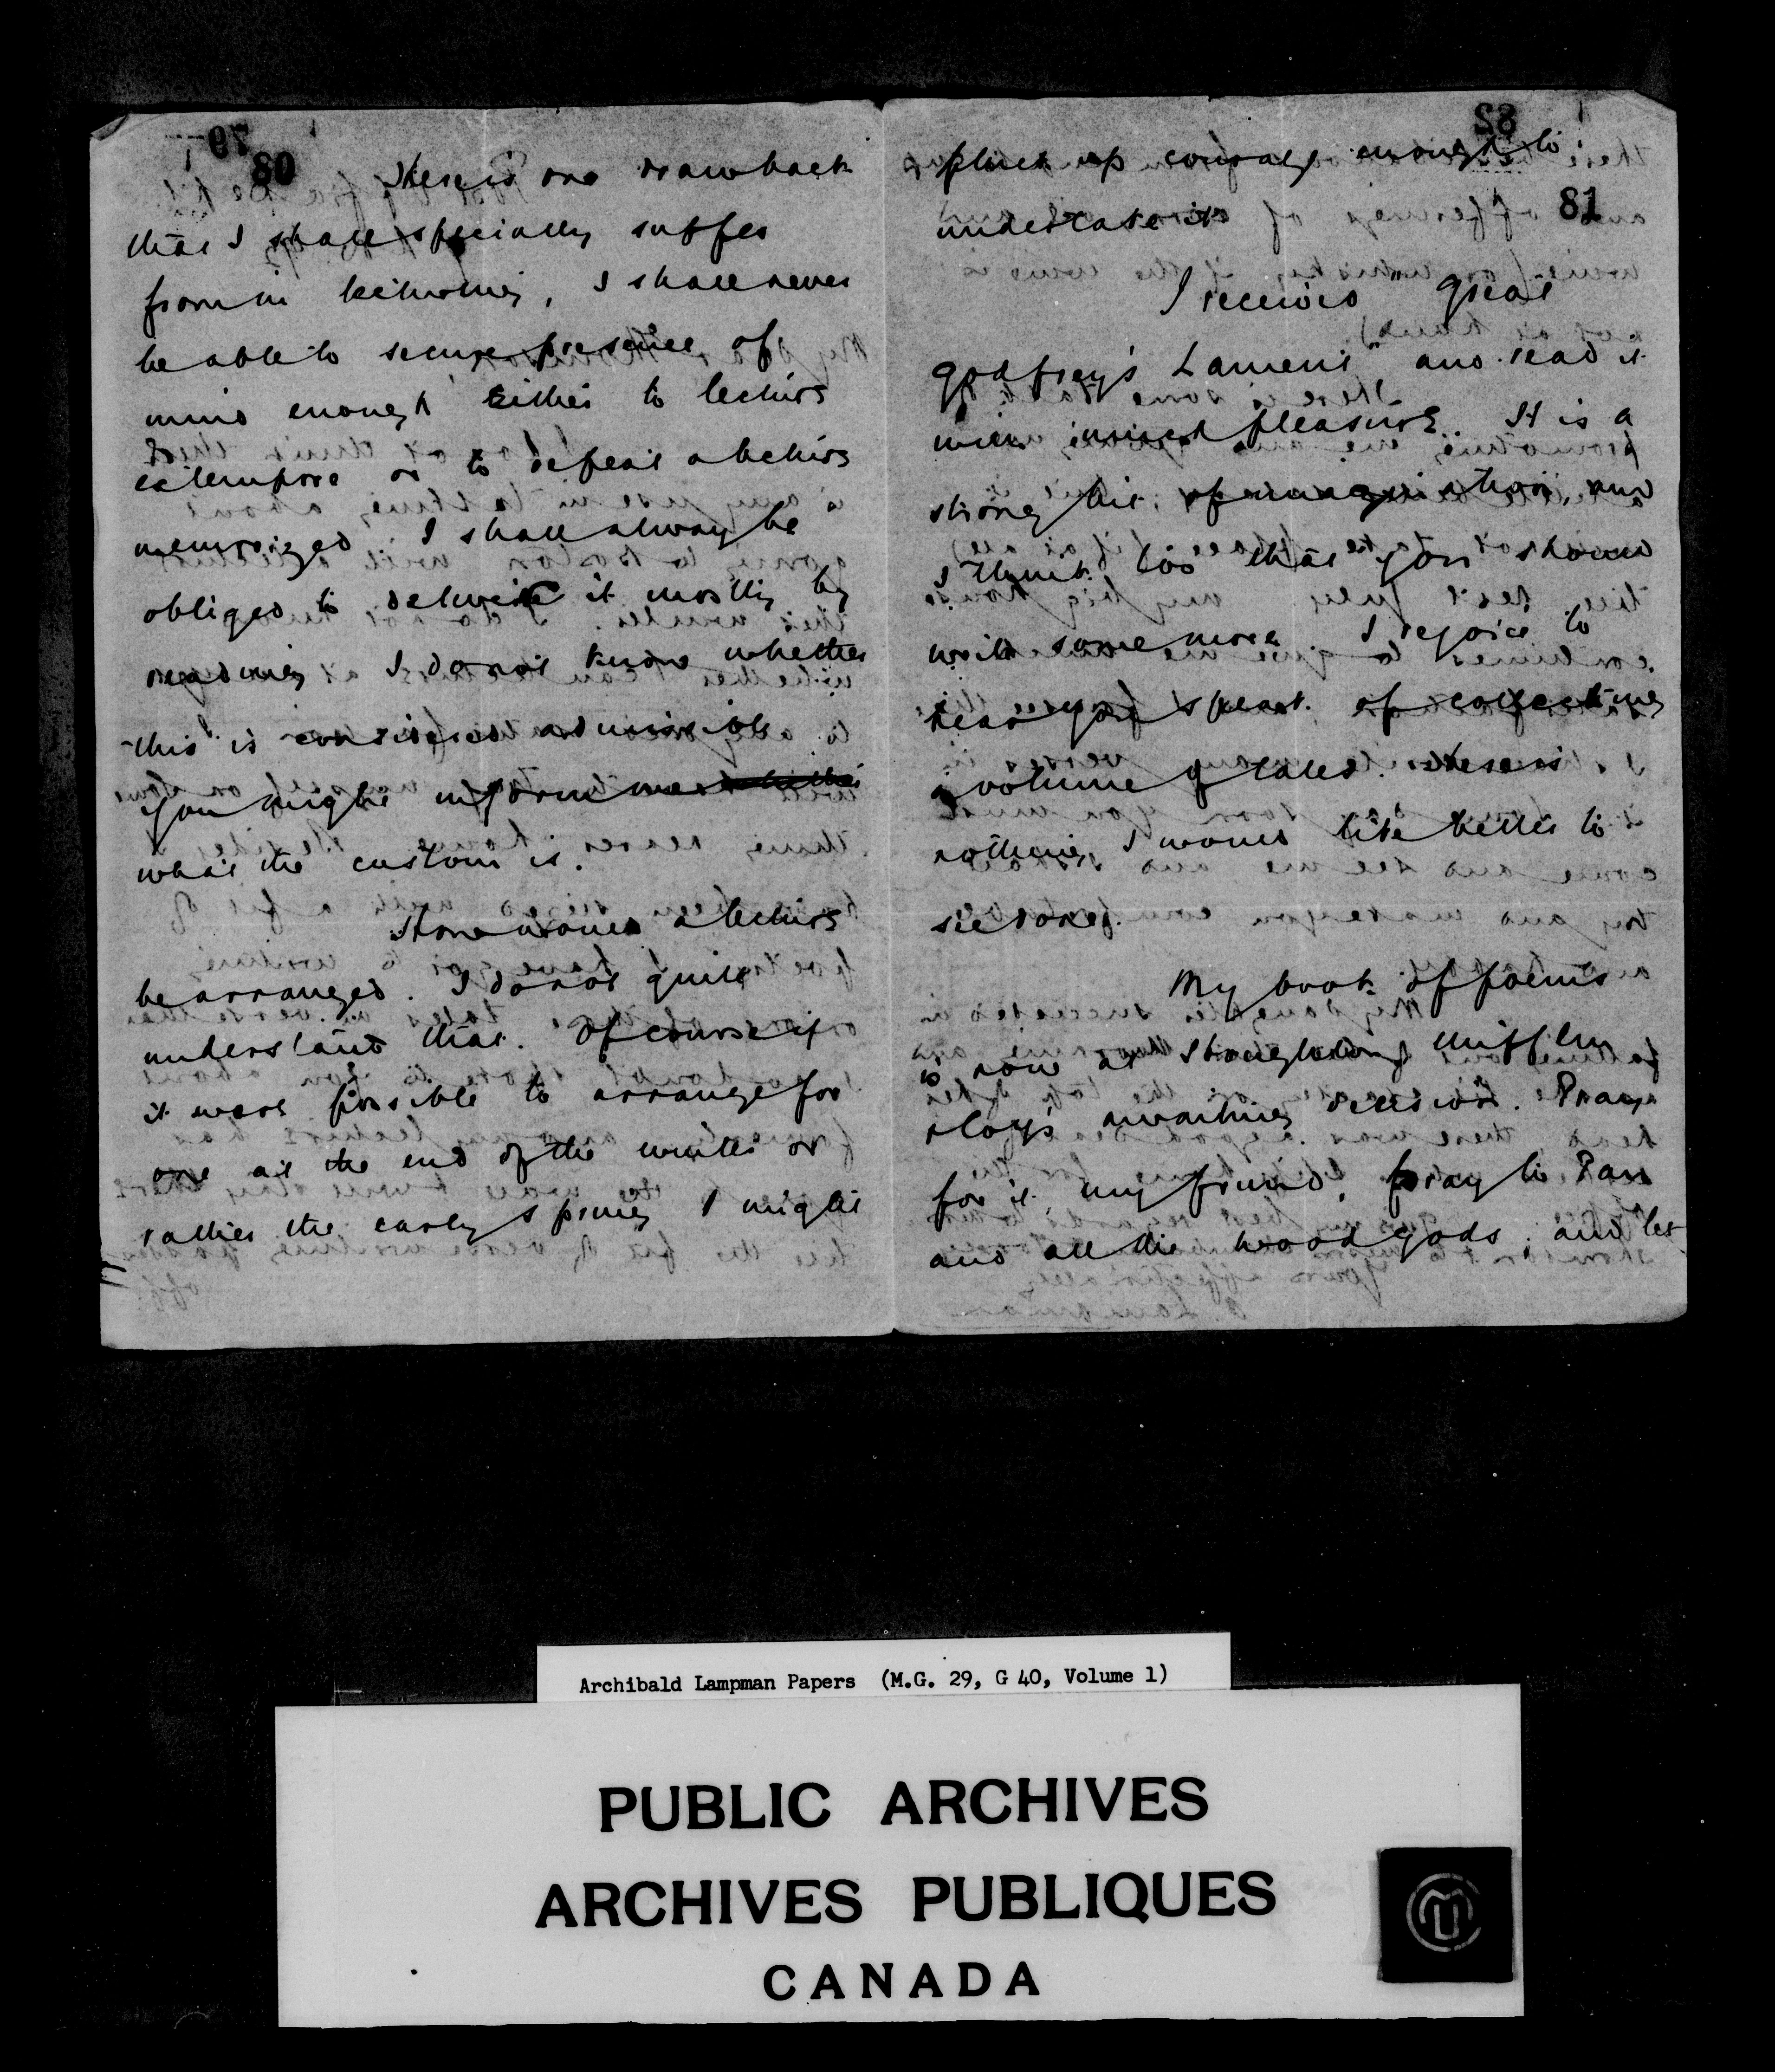 80
There is one drawback
that I shall specially suffer
from in lecturing, I shall never
be able to secure presence of
mind enough either to lecture
extempore or to repeat a lecture
memorized I shall alway be
obliged to deliver it mostly by
reading I do not know whether
this is considered admissible
you might inform me whether
what the custom is.
How would a lecture
be arranged. I do not quite
understand that. Of course if
it were possible to arrange for
one at the end of the winter or
rather the early spring I might
pluck up courage enough to
81
undertake it
I received "Great
Godfrey's Lament" and read it
with pleasure. It is a
strong bit of imagination, and
I think too that you should
write some more I rejoice to
hear you speak of collecting
a volume of tales. There is
nothing I would like better to
see done.
My book of poems
is now at Houghton, Mifflin
&Coy's awaiting decision. Pray
for it my friend, pray to Pan
and all the wood gods; and let
Archibald Lampman Papers (M.G. 29, G 40, Volume 1)
PUBLIC ARCHIVES
ARCHIVES PUBLIQUES
CANADA